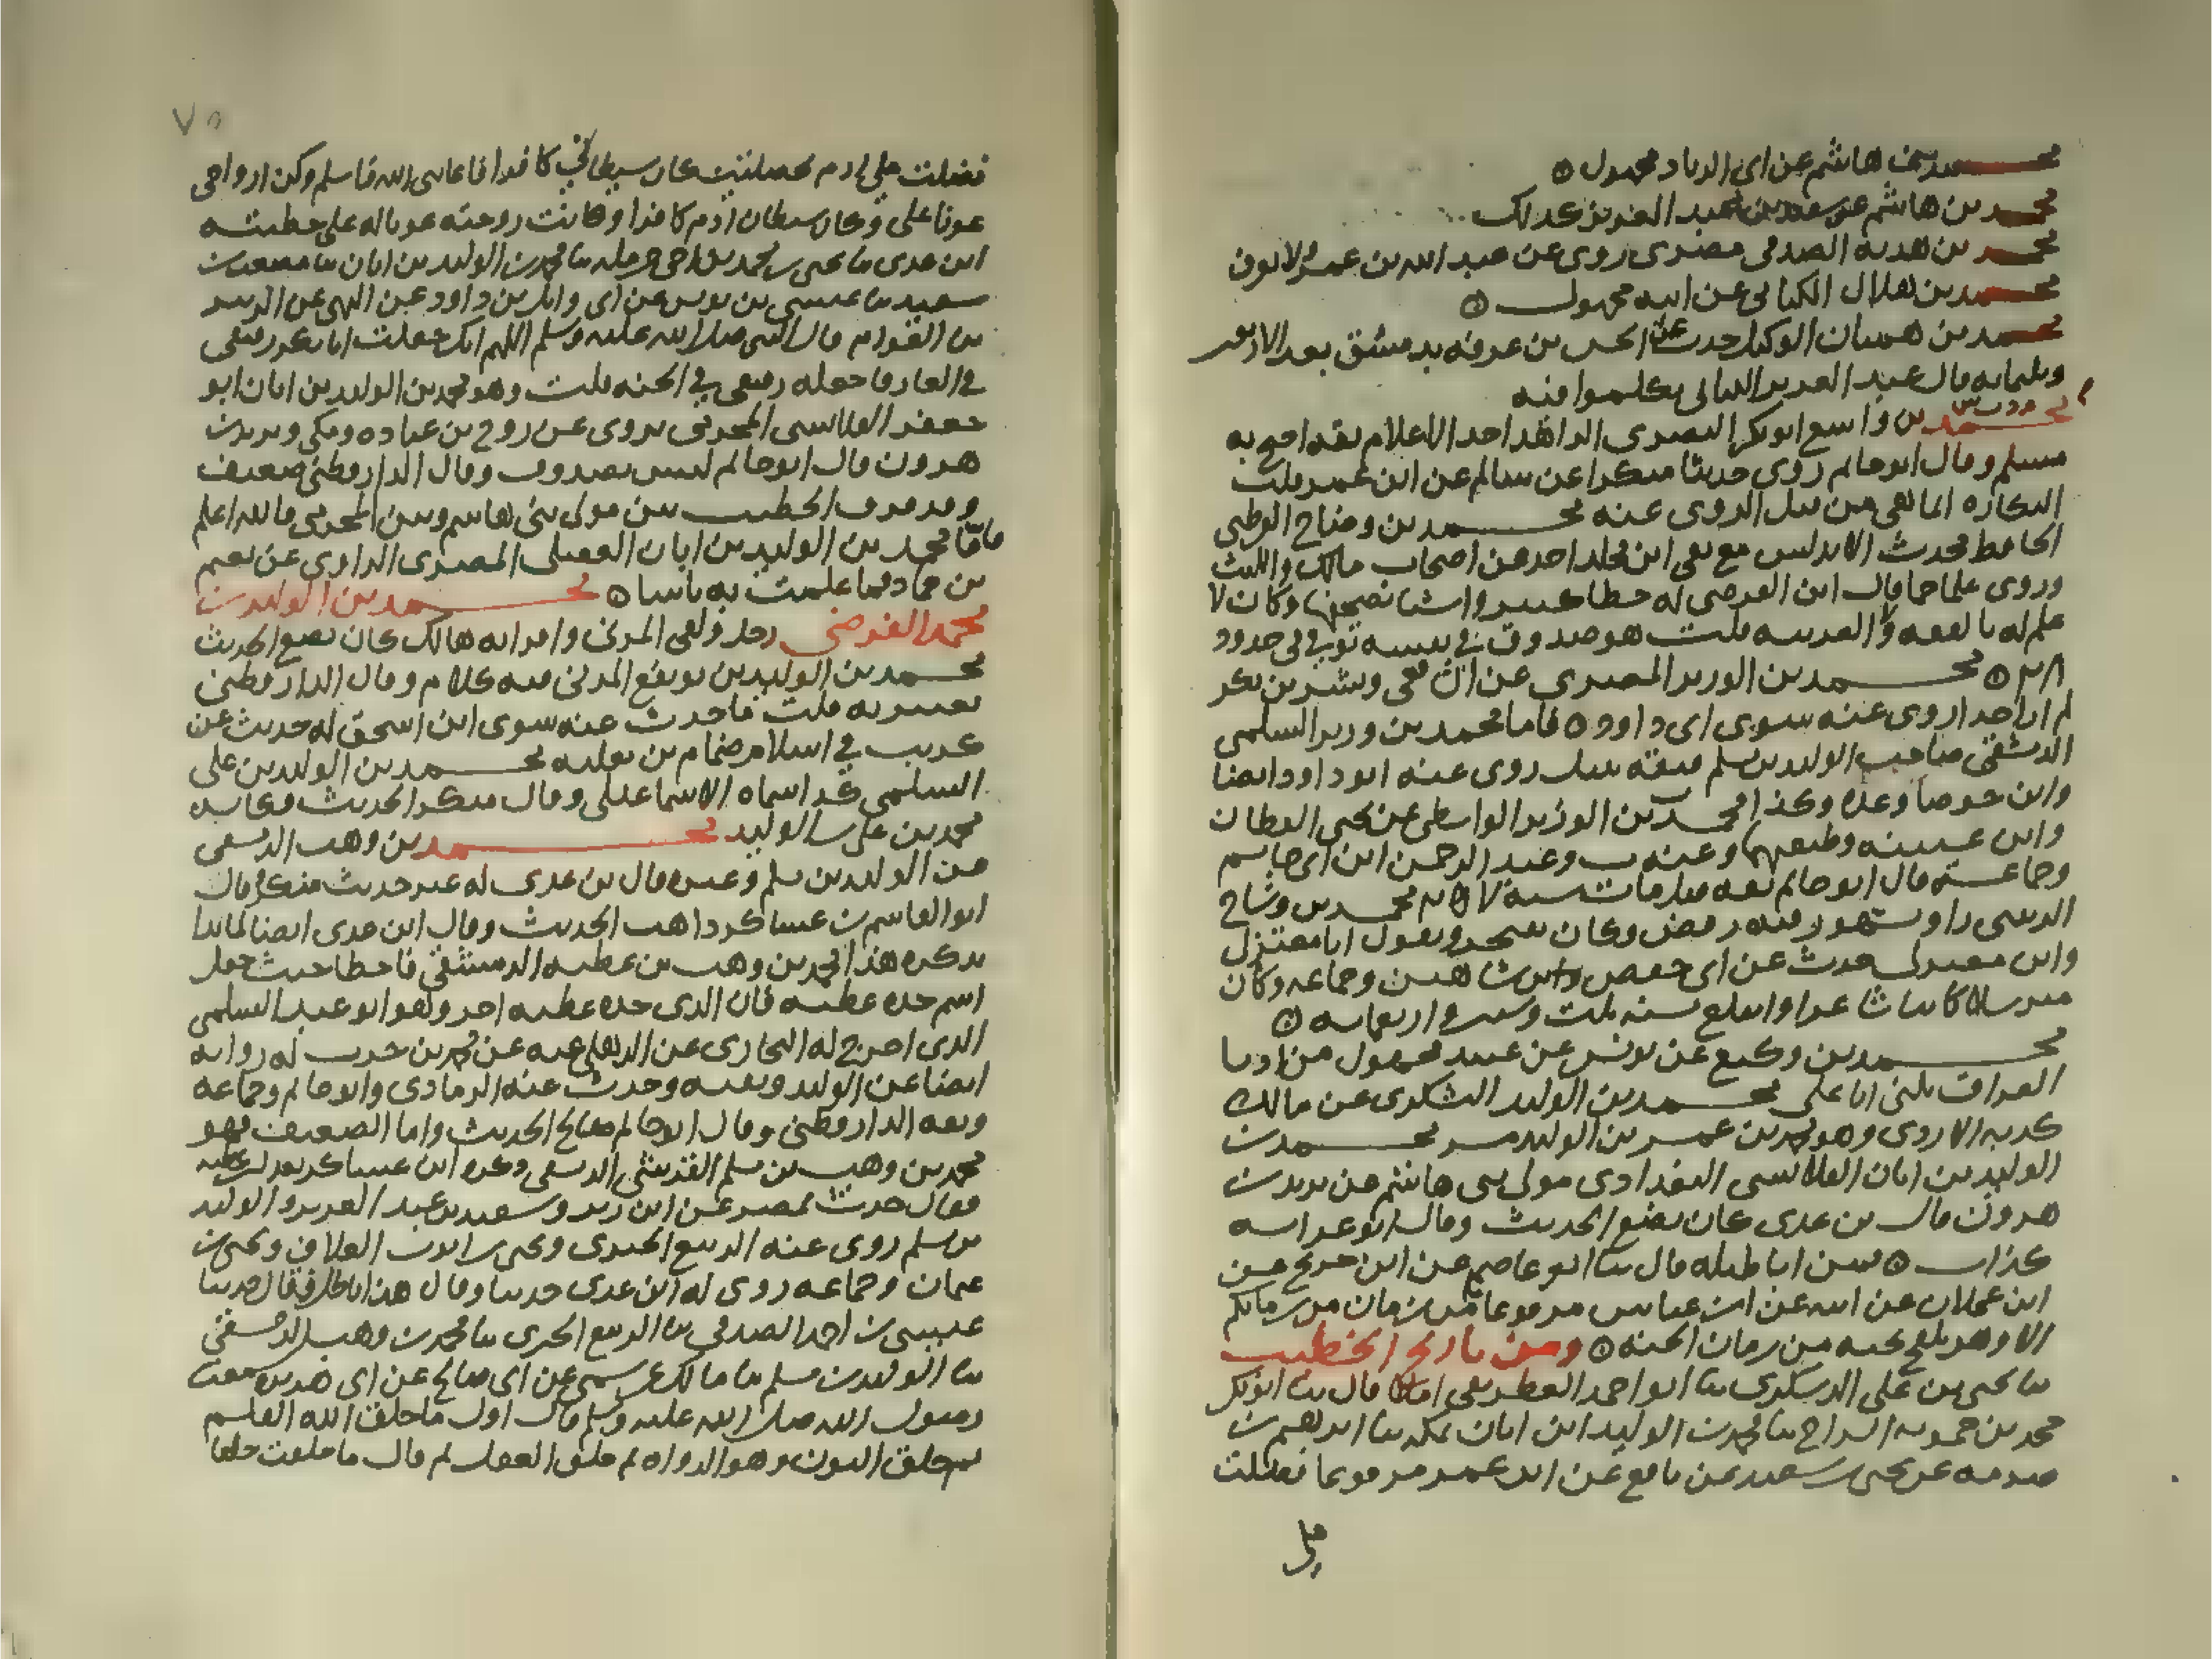 محمد بن هاشم عن ابي الزناد مجهول ه
محمد بن هاشم عن سعيد بن عبد العزيز كذلك
محمد بن هدية الصدفي مصري روى عن عبد الله بن عمرو لا يعرف
محمد بن هلال الكناني عن ابيه مجهول ه
محمد بن هميان الوكيل حدث عن الحسن بن عرفة بدمشق بعد الاربعين
وثلثمايه قال عبد العزيز الكتاني تكلموا فيه
محمد بن واسع ابو بكر البصري الزاهد احد الاعلام ثقه احتج به
مسلم وقال ابو حاتم روى حديثا منكرا عن سالم عن ابن عمر قلت
النكاره انما هي من قبل الراوي عنه محمد بن وضاح القرطبي
الحافظ محدث الاندلس مع بقي ابن مخلد اخذ عن اصحاب مالك والليث
وروى علما جما قال ابن الفرضي له خطا كثير واشيا يصحفها وكان لا
علم له بالفقه ولا العربيه قلت هو صدوق في نفسه توفي في حدود
٢٨٠ ه محمد بن الوزير المصري عن الشافعي وبشر بن بكر
لم ار احدا روى عنه سوى ابي داود ه فاما محمد بن وزير السلمي
الدمشقي صاحب الوليد بن مسلم فثقه نبيل روى عنه ابو داود ايضا
وابن جوصا وعده وكذا محمد بن الوزير الواسطي عن يحيى القطان
وابن عيينه وطبقتهما وعنه ت وعبد الرحمن ابن ابي حاتم
وجماعة قال ابو حاتم ثقه مات سنة ٢٥٧ محمد بن وشاح
الزينبي راو مشهور فيه رفض وكان يفتخر ويقول انا معتزلي
وابن معتزلي حدث عن ابي حفص وابن شاهين وجماعه وكان
مترسلا كاتبا شاعرا وانقلع سنة ثلث وستين واربعمايه ه
محمد بن وكيع عن يونس عن عبيد مجهول من ادبا
العراق يكنى ابا علي محمد بن الوليد اليشكري عن مالك
كذبه الازدي وهو محمد بن عمر بن الوليد مر محمد بن
الوليد بن ابان القلانسي البغدادي مولى بني هاشم عن يزيد بن
هرون قال بن عدي كان يضع الحديث وقال ابو عروبه
كذاب ه فمن اباطيله قال ثنا ابو عاصم عن ابن جريج عن
ابن عجلان عن ابيه عن ابن عباس مرفوعا ما من رمان من رمانكم
الا وهو يلقح بحبه من رمان الجنه ه ومن تاريخ الخطيب
ثنا يحيى بن علي الدسكري ثنا ابو احمد الغطريفي املا قال ثنا ابو بكر
محمد بن حمويه السراج ثنا محمد بن الوليد ابن ابان بمكه ثنا ابراهيم بن
صدمه عن يحيى بن سعيد عن نافع عن ابن عمر مرفوعا فضلت
على
٧٥
فضلت على ادم بخصلتين كان شيطاني كافرا فاعانني الله فاسلم وكن ازواجي
عونا على وكان شيطان ادم كافرا وكانت زوجته عونا له على خطيئته
ابن عدي ثنا يحيى بن محمد بن اخي حرملة ثنا محمد بن الوليد بن ابان ثنا مصعب بن
سعيد ثنا عيسى بن يونس عن ابي وايل بن داود عن البهي عن الزبير
بن العوام قال النبي صلى الله عليه وسلم اللهم انك جعلت ابا بكر رفيقي
في الغار فاجعله رفيقي في الجنه قلت وهو محمد بن الوليد بن ابان ابو
جعفر القلانسي المخرمي يروى عن روح بن عباده ومكي ويزيد بن
هرون قال ابو حاتم ليس بصدوق وقال الدارقطني ضعيف
وقد فرق الخطيب بين مولى بني هاشم وبين المخرمي فالله اعلم
فاما محمد بن الوليد بن ابان العقيلي المصري الراوي عن نعيم
بن حماد فما علمت به باسا ه محمد بن الوليد بن
محمد القرضي رجل ولقى المزني وافرابه هالك كان يضع الحديث
محمد بن الوليد بن نويفع المدني فيه كلام وقال الدارقطني
يعتبر به قلت فما حدث عنه سوى ابن اسحق له حديث عن
كريب في اسلام ضمام بن ثعلبه محمد بن الوليد بن علي
السلمي كذا سماه الاسماعيلي وقال منكر الحديث وكانه
محمد بن علي بن الوليد محمد بن وهب الدمشقي
عن الوليد بن مسلم وغيره قال بن عدي له غير حديث منكر وقال
ابو القاسم بن عساكر ذاهب الحديث وقال ابن عدي ايضا لما بدا
بذكره هذا محمد بن وهب بن عطيه الدمشقي فاخطا حيث جعل
اسم جده عطيه فان الذي جده عطيه اخر وهو ابو عبد الله السلمي
الذي اخرج له البخاري عن الذهلي عنه عن محمد بن حرب له روايه
ايضا عن الوليد وبقيه وحدث عنه الرمادي وابو حاتم وجماعه
وثقه الدارقطني وقال ابو حاتم صالح الحديث واما الضعيف فهو
محمد بن وهب بن مسلم القرشي الدمشقي ذكره ابن عساكر بعد ابن عطيه
فقال حدث بمصر عن ابن زبر وسعيد بن عبد العزيز والوليد
بن مسلم روى عنه الربيع الجيزي ويحيى بن ايوب العلاف ويحيى بن
عثمان وجماعه روى له ابن عدي حديثا وقال هذا باطل فقال حدثنا
عيسى بن احمد الصدفي ثنا الربيع الجيزي ثنا محمد بن وهب الدمشقي
ثنا الوليد بن مسلم ثنا مالك عن سمي عن ابي صالح عن ابي هريره سمعت
رسول الله صلى الله عليه وسلم قال اول ما خلق الله القلم
ثم خلق النون وهو الدواه ثم خلق العقل ثم قال ما خلقت خلقا